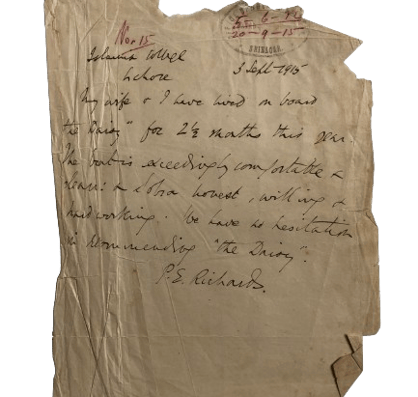 No 15
20-9-15
SRINAGAR
College
Lahore
3 Sept 1915
My wife & I have lived on board
the Daisy" for 2½ months this year.
The boat is exceedingly comfortable &
clean: & Sobra honest, willing &
hard working. We have no hesitation
in recommending "the Daisy".
P. E. Richards.